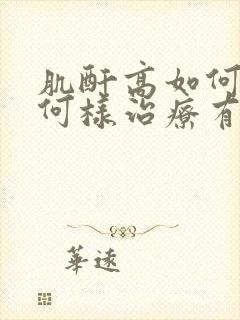 肌酐高如何
何樣治療有
華遠